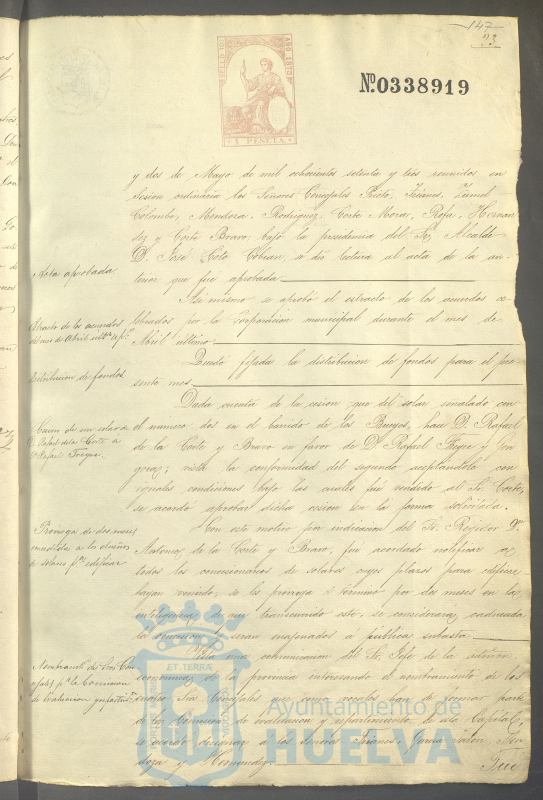 147
23
SELLO 10º AÑO 1873
1 PESETA
Nº 0338919
y dos de Mayo de mil ochocientos setenta y tres reunidos en
sesion ordinaria los Señores Concejales Prieto,
Colombo, Mendoza, Rodriguez, Corte Mora, Rofa, Hernan
dez y Corte Bravo, bajo la presidencia del Sr. Alcalde
D. José Coto Cobian, se dió lectura al acta de la an-
terior que fué aprobada
Acta aprobada
Asi mismo se aprobó el estracto de los acuerdos ce-
lebrados por la Corporacion municipal durante el mes de
Abril último
Estracto de los acuerdos
del mes de Abril
Quedó fijada la distribucion de fondos para el pre-
sente mes
Distribucion de fondos
Dada cuenta de la cesion que del solar señalado con
el número dos en el barrido de los Bueyes, hace D. Rafael
de la Corte y Bravo en favor de D. Rafael
vista la conformidad del segundo aceptándola con
iguales condiciones bajo las cuales fué vendido al Sr. Corte,
se acordó aprobar dicha cesion en la forma solicitada.
Cesion de un solar
D. Rafael de la Corte a
D. Rafael
Con este motivo por indicacion del Sr. Regidor D.
Antonio de la Corte y Bravo, fue acordado notificar a
todos los concesionarios de solares cuyos plazos para edificar
hayan vencido, se les proroga el término por dos meses en la
inteligencia de que transcurrido este, se considerará caducada
la concesion y serán enagenados á pública subasta
Proroga de dos meses
concedida a los dueños
de solares pª edificar
Vista una comunicacion del Sr. Jefe de la admon
economica de la provincia interesando el nombramiento de los
Sres. Concejales que como vocales han de formar parte
de las Comisiones de evaluacion y repartimiento de esta Capital,
se acordó designar a los Señores Garcia Men-
doza y Hernandez.
Nombramtº de Con-
cejales pª la Comision
de Evaluacion
Que
ET TERRÆ
Ayuntamiento de
HUELVA